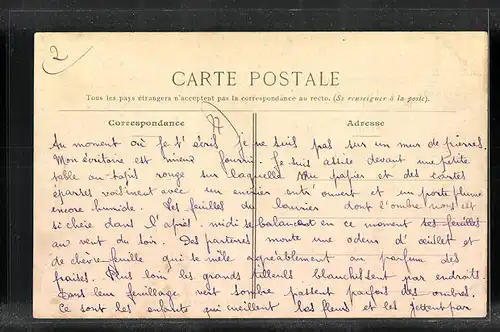 2
CARTE POSTALE
Tous les pays étrangers n'acceptent pas la correspondance au recto. (Se renseigner à la poste).
Correspondance
Adresse
Au moment où je t'écris je ne suis pas sur un mur de pierres.
Mon écritoire est mieux fourni. Je suis assise devant une petite
table au tapis rouge sur laquelle du papier et des cartes
éparses voisinent avec un encrier entr'ouvert et un porte plume
encore humide. Les feuilles du laurier dont l'ombre nous est
si chère dans l'après-midi se balancent en ce moment
au vent du soir. Des parterres monte une odeur d'œillet et
de chèvre-feuille qui se mêle agréablement au parfum des
fraises. Plus loin les grands tilleuls blanchissent par endroits.
Dans leur feuillage vert sombre passent parfois des ombres.
Ce sont les enfants qui cueillent les fleurs et les jettent par